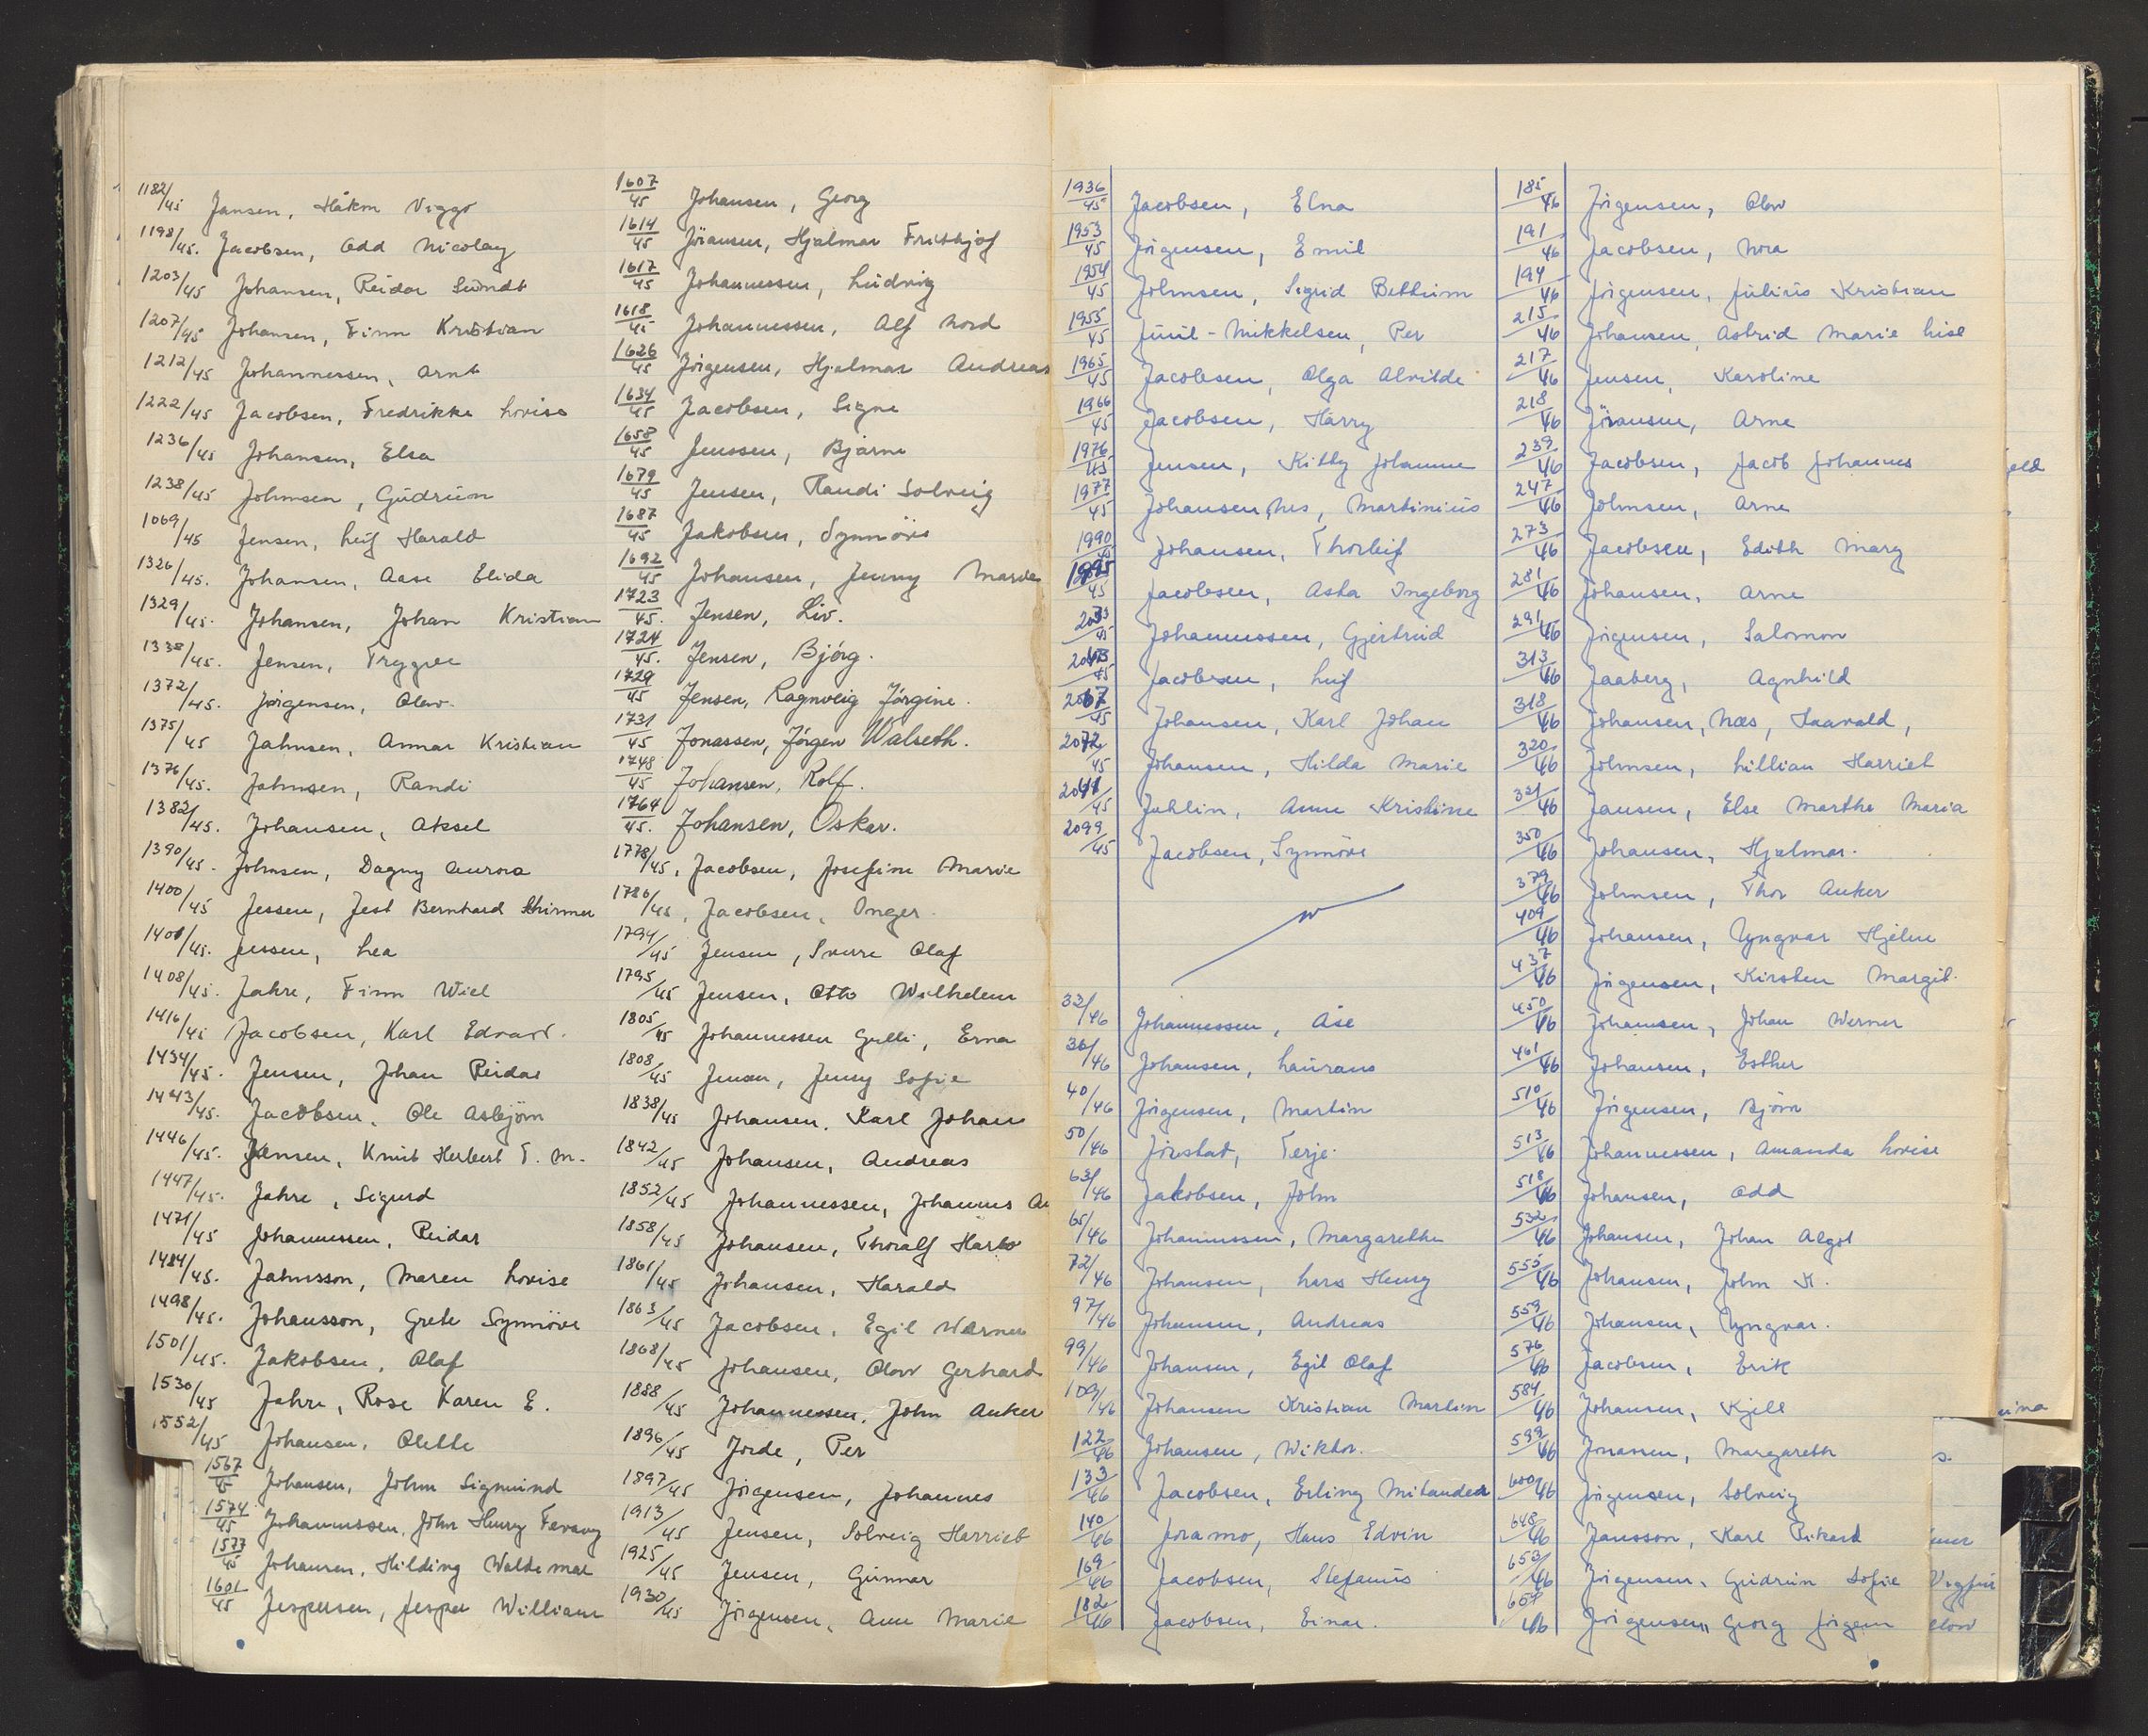 1182/45 Jansen, Håkon Viggo
1198/45. Jacobsen, Odd Nicolay
1203/45 Johansen, Reidar Sundt
1207/45 Johansen, Finn Kristian
1212/45 Johannessen, Arnt
1222/45 Jacobsen, Fredrikke Lovise
1236/45 Johansen, Elsa
1238/45 Johnsen, Gudrun
1069/45 Jensen, Leif Harald
1326/45. Johansen, Aase Elida
1329/45. Johansen, Johan Kristian
1338/45. Jensen, Trygve
1372/45. Jørgensen, Olav.
1375/45 Jahnsen, Annar Kristian
1376/45. Jahnsen, Randi
1382/45. Johansen, Aksel
1390/45. Johnsen, Dagny Aurora
1400/45 Jessen, Jest Bernhard
1401/45. Jessen, Lea
1408/45. Jahre, Finn Wiel
1416/45 Jacobsen, Karl Edvard.
1434/45. Jensen, Johan Reidar
1443/45. Jacobsen, Ole Asbjörn
1446/45. Jensen, Knut Herbert T. M.
1447/45. Jahre, Sigurd
1471/45 Johannessen, Reidar
1484/45. Jahnsson, Maren Lovise
1498/45. Johansson, Grete Synnöve
1501/45. Jakobsen, Olaf
1530/45 Jahre, Rose Karen E.
1552/45 Johansen, Olette
1567/45 Johansen, John Sigmund
1574/45 Johannessen, John Henry
1577/45 Johansen, Hilding Waldemar
1601/45 Jespersen, Jesper William
1607/45 Johansen, Georg
1614/45 Jöransen, Hjalmar Frithjof
1617/45 Johannessen, Ludvig
1618/45 Johannessen, Alf Nord
1626/45 Jörgensen, Hjalmar Andreas
1634/45 Jacobsen, Signe
1658/45 Jenssen, Bjarne
1679/45 Jensen, Randi Solveig
1687/45 Jakobsen, Synnöve
1692/45 Johansen, Jenny Marie
1723/45. Jensen, Liv.
1724/45. Jensen, Bjórg.
1729/45 Jensen, Ragnveig Jórgine.
1731/45 Jonassen, Jórgen Walseth.
1748/45 Johansen, Rolf.
1764/45. Johansen, Oskar.
1778/45, Jacobsen, Josefine Marie
1786/45, Jacobsen, Inger.
1794/45 Jensen, Sverre Olaf
1795/45 Jensen, Otto Wilhelm
1805/45 Johannessen Gulli, Erna
1808/45 Jensen, Jenny Sofie
1838/45 Johansen, Karl Johan
1842/45 Johansen, Andreas
1852/45 Johannessen, Johannes
1858/45 Johansen, Thoralf
1861/45 Johansen, Harald
1863/45 Jacobsen, Egil Werner
1868/45 Johansen, Olav Gerhard
1888/45 Johannessen, John Anker
1896/45 Jorde, Per
1897/45 Jörgensen, Johannes
1913/45 Jensen, Solveig Harriet
1925/45 Jensen, Gunnar
1930/45 Jörgensen, Anne Marie
1936/45 Jacobsen, Elna
1953/45 Jörgensen, Emil
1954/45 Johnsen, Sigrid
1955/45 Juul-Mikkelsen, Per
1965/45 Jacobsen, Olga Alvilde
1966/45 Jacobsen, Harry
1976/45 Jensen, Kitty Johanne
1977/45 Johansen, Nes, Martinius
1990/45 Johansen, Thorleif
1995/45 Jacobsen, Asta Ingeborg
/45 Johannessen, Gjertrud
/45 Jacobsen, Leif
2067/45 Johansen, Karl Johan
2072/45 Johansen, Hilda Marie
/45 Juhlin, Anne Kristine
2099/45 Jacobsen, Synnöve
32/46 Johannessen, Åse
36/46 Johansen, Laurans
40/46 Jörgensen, Martin
50/46 Jörstad, Terje.
63/46 Jakobsen, John
65/46 Johannessen, Margarethe
72/46 Johansen, Lars Henry
97/46 Johansen, Andreas
99/46 Johansen, Egil Olaf
109/46 Johansen Kristian Martin
122/46 Johansen, Wiktor.
133/46 Jacobsen, Erling Mitander
140/46 Joramo, Hans Edvin
169/46 Jacobsen, Stefanus
182/46 Jacobsen, Einar.
185/46 Jörgensen, Olav
191/46 Jacobsen, Nora
194/46 Jörgensen, Julius Kristian
215/46 Johansen, Astrid Marie Lise
217/46 Jensen, Karoline
218/46 Jöransen, Arne
239/46 Jacobsen, Jacob Johannes
247/46 Johnsen, Arne
273/46 Jacobsen, Edith Mary
281/46 Johansen, Arne
291/46 Jörgensen, Salomon
313/46 Jaaberg, Agnhild
318/46 Johansen, Næs, Haavald,
320/46 Johnsen, Lillian Harriet
321/46 Jansen, Else Marthe Maria
350/46 Johansen, Hjalmar.
379/46 Johnsen, Thor Anker
409/46 Johansen, Yngvar Hjelm
437/46 Jörgensen, Kirsten Margit.
450/46 Johansen, Johan Werner
461/46 Johansen, Esther
510/46 Jörgensen, Björn
513/46 Johannessen, Amanda Lovise
518/46 Johansen, Odd
532/46 Johansen, Johan Algot
555/46 Johansen, John K.
559/46 Johansen, Yngvar.
576/46 Jacobsen, Erik
584/46 Johansen, Kjell
599/46 Jonassen, Margareth
600/46 Jörgensen, Solveig
648/46 Jansson, Karl Rikard
653/46 Jörgensen, Gudrun Sofie
657/46 Jörgensen, Georg Jörgen